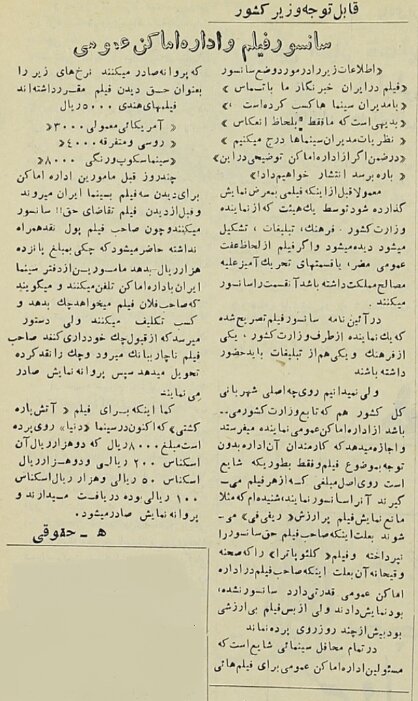 قابل توجه وزیر کشور
سانسور فیلم و اداره اماکن عمومی
«اطلاعات زیر را در مورد وضع سانسور
«فیلم در ایران خبرنگار ما با تماس»
«با مدیران سینما ها کسب کرده است،»
«بدیهی است که ما فقط بلحاظ انعکاس»
«نظریات مدیران سینماها درج میکنیم»
«در ضمن اگر از اداره اماکن توضیحی در این»
«باره برسد انتشار خواهیم داد»
معمولا قبل از اینکه فیلمی بمعرض نمایش
گذارده شود توسط یک هیئت که از نماینده
وزارت کشور، فرهنگ، تبلیغات، تشکیل
میشود دیده میشود و اگر فیلم از لحاظ عفت
عمومی مضر، یا قسمتهای تحریک آمیز علیه
مصالح مملکت داشته باشد آنقسمت را سانسور
میکنند
در آئین نامه سانسور فیلم تصریح شده
که یک نماینده از طرف وزارت کشور، یکی
از فرهنگ و یکی هم از تبلیغات باید حضور
داشته باشند
ولی نمیدانیم روی چه اصلی شهربانی
کل کشور هم که تابع وزارت کشور می‌ـ
باشد از اداره اماکن عمومی نماینده میفرستد
و اجازه میدهد که کارمندان آن اداره بدون
توجه بموضوع فیلم و فقط بطوریکه شایع
است روی اصل مبلغی که از هر فیلم می‌ـ
گیرند آنرا سانسور نمایند، شنیده‌ام که مثلا
مانع نمایش فیلم پر ارزش «ریفی فی» می‌ـ
شوند بعلت اینکه صاحب فیلم حق سانسور را
نپرداخته و فیلم «کلئوپاترا» را که صحنه
وقیحانه آن بعلت اینکه صاحب فیلم در اداره
اماکن عمومی قدرتی دارد سانسور نشده،
بود نمایش دادند ولی از بس فیلم بی ارزشی
بود بیش از چند روز روی پرده نماند
در تمام محافل سینمائی شایع است که
مسئولین اداره اماکن عمومی برای فیلم هائی
که پروانه صادر میکنند نرخ‌های زیر را
بعنوان حق دیدن فیلم مقرر داشته‌اند
فیلمهای هندی ۵۰۰۰ ریال
« آمریکائی معمولی ۳۰۰۰ »
« روسی و متفرقه ۴۰۰۰ »
« سینماسکوپ و رنگی ۸۰۰۰ »
چند روز قبل مامورین اداره اماکن
برای دیدن سه فیلم بسینما ایران میروند
و قبل از دیدن فیلم تقاضای حق!! سانسور
میکنند و چون صاحب فیلم پول نقد همراه
نداشته حاضر میشود که چکی بمبلغ پانزده
هزار ریال بدهد مامورین از دفتر سینما
ایران باداره اماکن تلفن میکنند و میگویند
که صاحب فلان فیلم میخواهد چک بدهد و
کسب تکلیف میکنند ولی دستور
میرسد که از قبول چک خودداری کنند صاحب
فیلم ناچار ببانک میرود و چک را نقد کرده
تحویل میدهد سپس پروانه نمایش صادر
می نمایند
کما اینکه برای فیلم «آتش پاره
کشتی» که اکنون در سینما «دنیا» روی پرده
است مبلغ ۸۰۰۰ ریال که دو هزار ریال آن
اسکناس ۲۰۰ ریالی و دو هزار ریال
اسکناس ۵۰ ریالی و هزار ریال اسکناس
۱۰۰ ریالی بوده دریافت میدارند و
پروانه نمایش صادر میشود.
ه ـ حقوقی